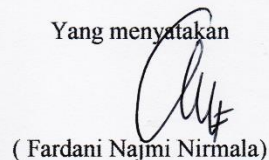 Yang menyatakan
( Fardani Najmi Nirmala)